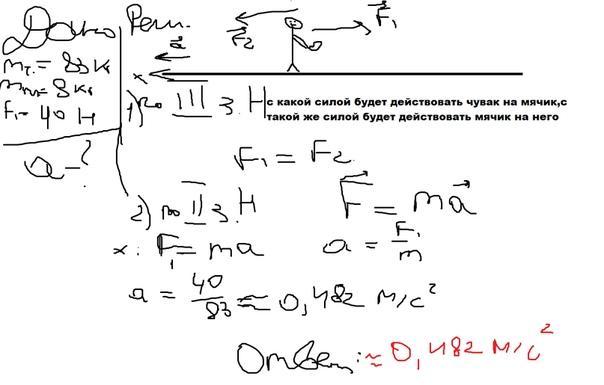 Дано
Реш.
mт. = 83 кг
mм = 8 кг
F₁ = 40 Н
a - ?
F₂
F₁
a
x
1) по III з. Н
с какой силой будет действовать чувак на мячик,с
такой же силой будет действовать мячик на него
F₁ = F₂
2) по II з. Н
F = ma
x: F₁ = ma
a = F₁/m
a = 40/83 ≈ 0,482 м/с²
Ответ: ≈ 0,482 м/с²